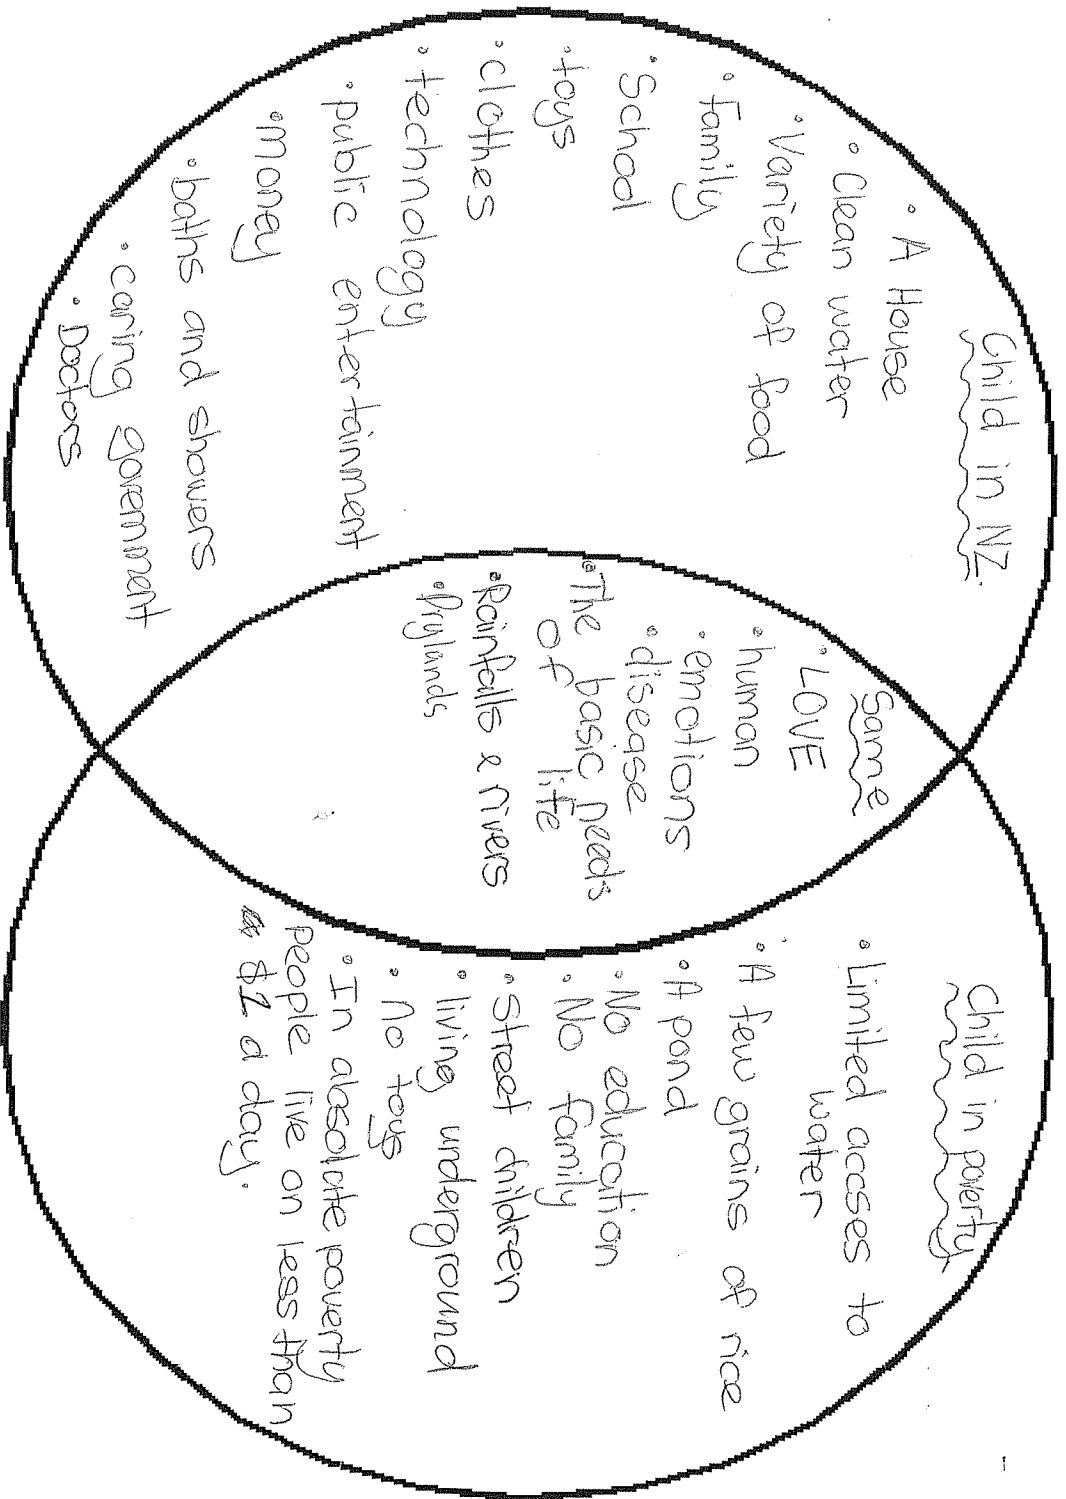 Child in NZ.
• A House
• Clean water
• Variety of food
• Family
• School
• toys
• clothes
• technology
• public entertainment
• money
• baths and showers
• caring government
• Doctors
Same
• LOVE
• human
• emotions
• disease
• The basic needs
of life
• Rainfalls & rivers
• Drylands
Child in poverty
• Limited accses to
water
• A few grains of rice
• A pond
• No education
• No family
• Street children
• living underground
• no toys
• In absolute poverty
people live on less than
$1 a day.